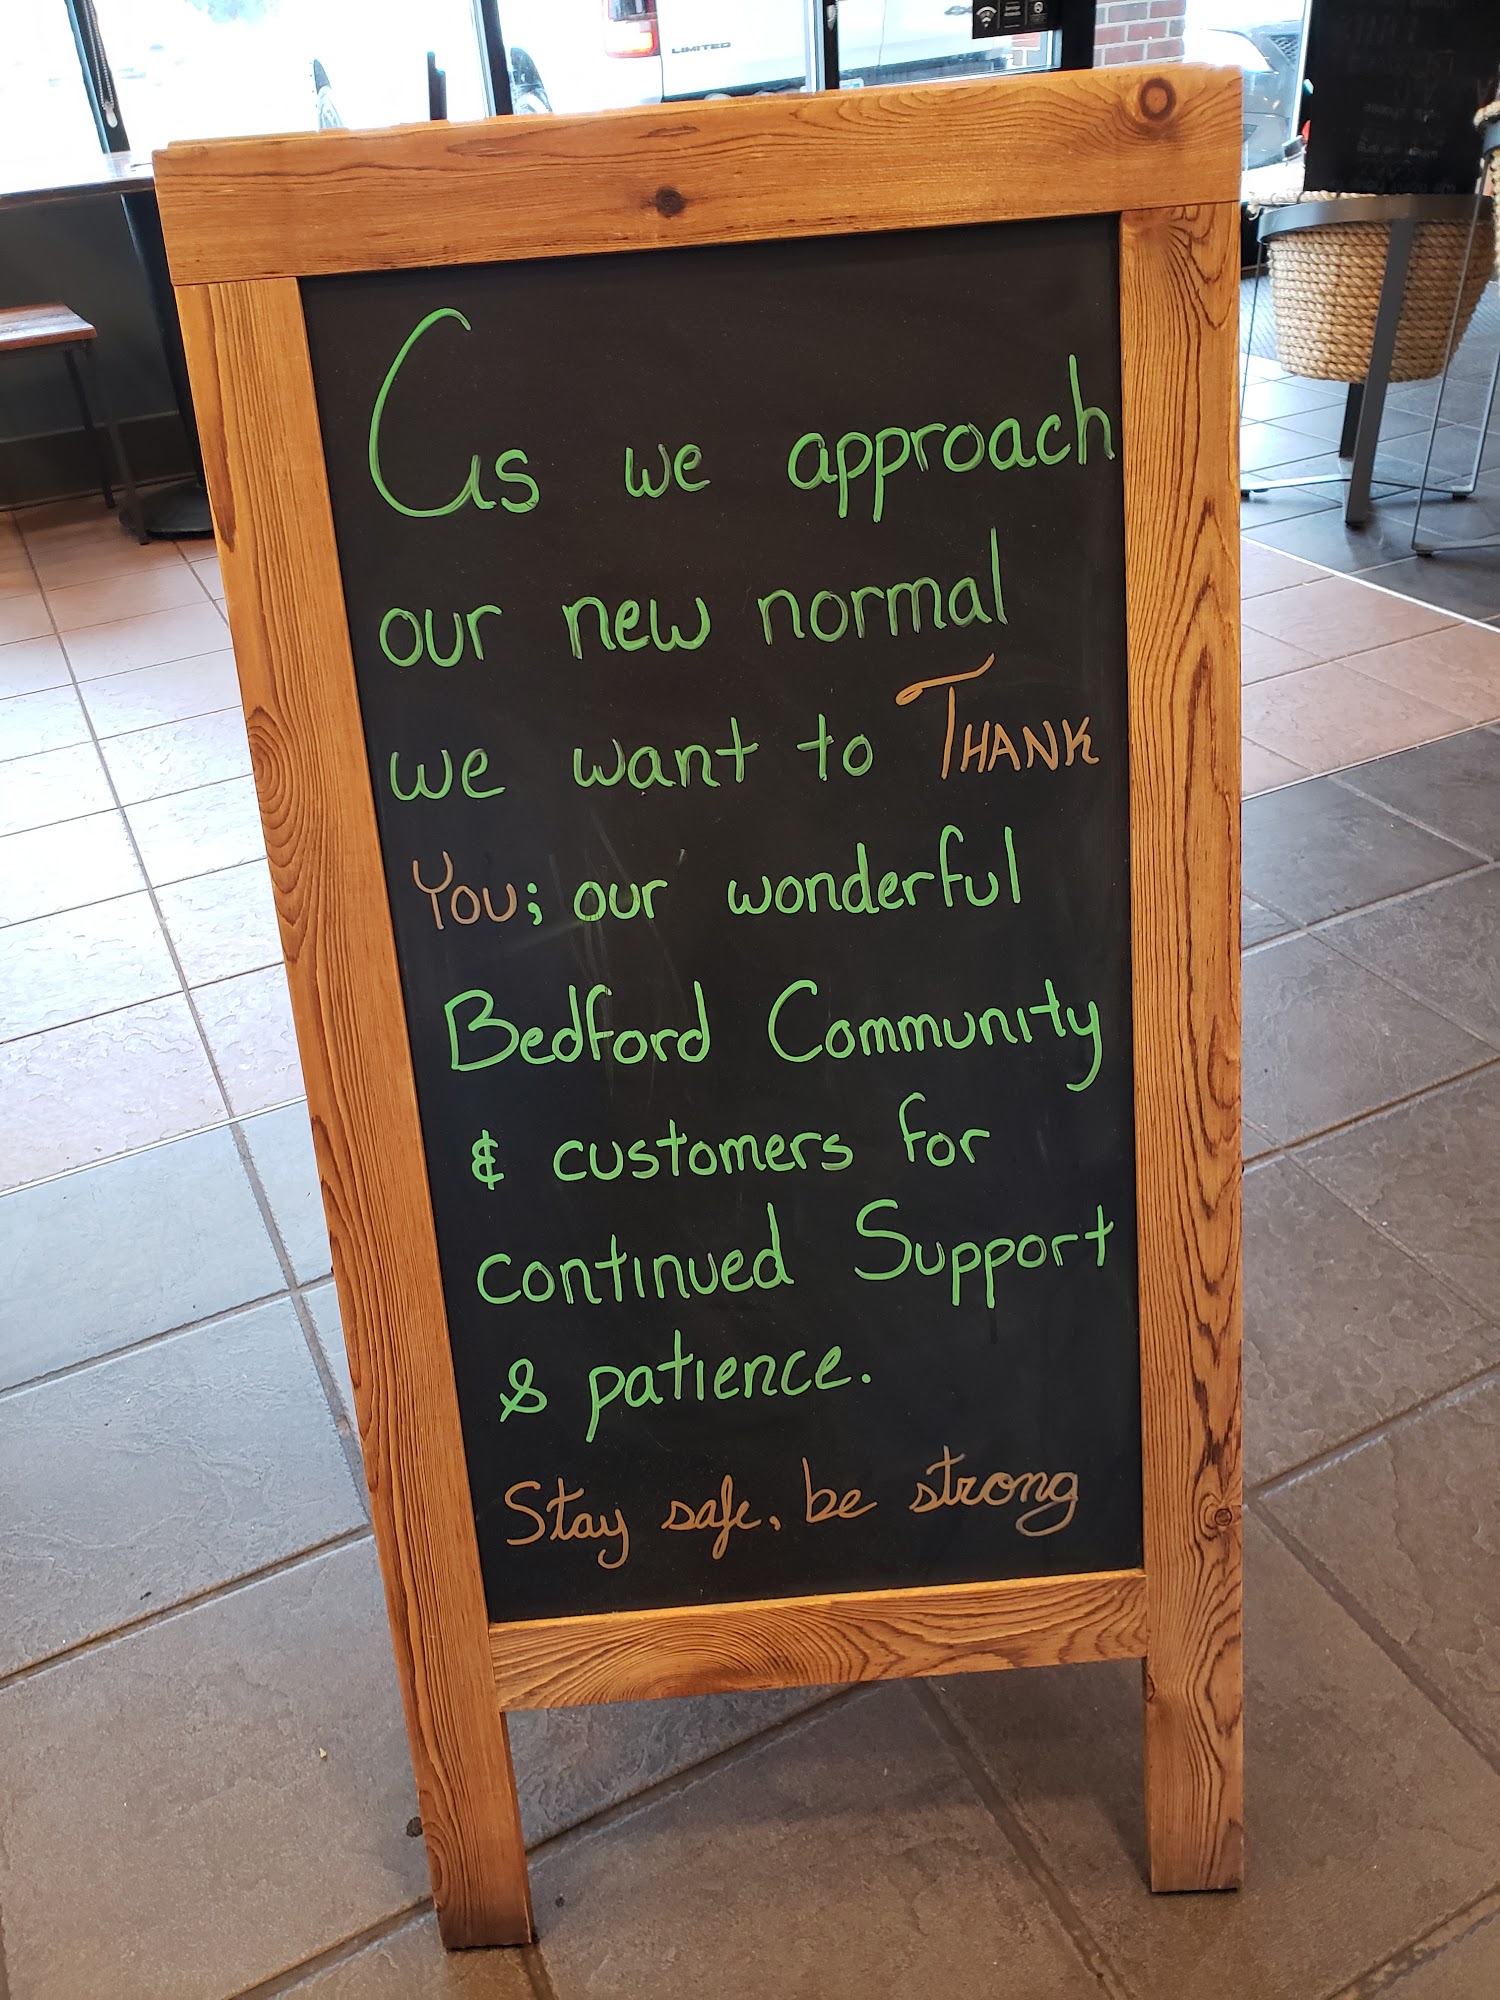 LIMITED
As we approach
our new normal
we want to THANK
YOU; our wonderful
Bedford Community
& customers for
continued Support
& patience.
Stay safe, be strong